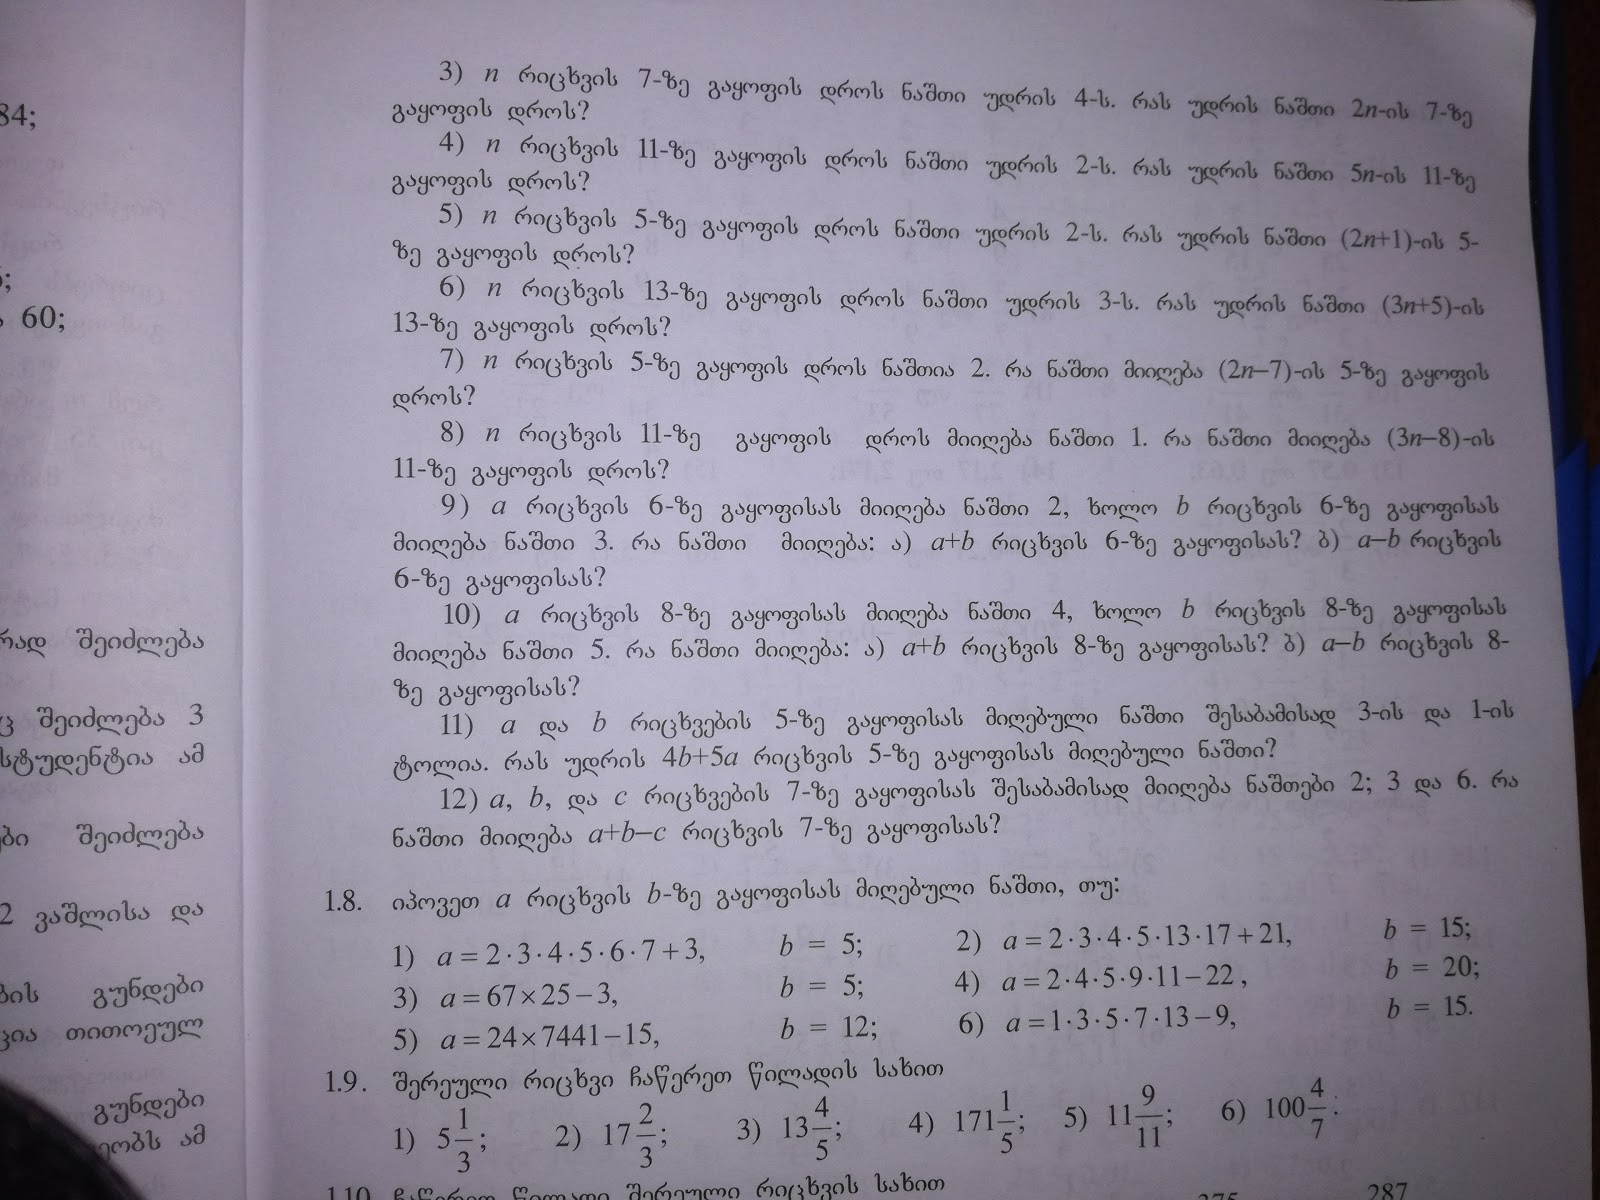 84;
60;
რად შეიძლება
შეიძლება 3
სტუდენტია ამ
ბი შეიძლება
2 ვაშლისა და
ბის გუნდები
ცია თითოეულ
გუნდები
ეობს ამ
3) n რიცხვის 7-ზე გაყოფის დროს ნაშთი უდრის 4-ს. რას უდრის ნაშთი 2n-ის 7-ზე
გაყოფის დროს?
4) n რიცხვის 11-ზე გაყოფის დროს ნაშთი უდრის 2-ს. რას უდრის ნაშთი 5n-ის 11-ზე
გაყოფის დროს?
5) n რიცხვის 5-ზე გაყოფის დროს ნაშთი უდრის 2-ს. რას უდრის ნაშთი (2n+1)-ის 5-
ზე გაყოფის დროს?
6) n რიცხვის 13-ზე გაყოფის დროს ნაშთი უდრის 3-ს. რას უდრის ნაშთი (3n+5)-ის
13-ზე გაყოფის დროს?
7) n რიცხვის 5-ზე გაყოფის დროს ნაშთია 2. რა ნაშთი მიიღება (2n–7)-ის 5-ზე გაყოფის
დროს?
8) n რიცხვის 11-ზე გაყოფის დროს მიიღება ნაშთი 1. რა ნაშთი მიიღება (3n–8)-ის
11-ზე გაყოფის დროს?
9) a რიცხვის 6-ზე გაყოფისას მიიღება ნაშთი 2, ხოლო b რიცხვის 6-ზე გაყოფისას
მიიღება ნაშთი 3. რა ნაშთი მიიღება: ა) a+b რიცხვის 6-ზე გაყოფისას? ბ) a–b რიცხვის
6-ზე გაყოფისას?
10) a რიცხვის 8-ზე გაყოფისას მიიღება ნაშთი 4, ხოლო b რიცხვის 8-ზე გაყოფისას
მიიღება ნაშთი 5. რა ნაშთი მიიღება: ა) a+b რიცხვის 8-ზე გაყოფისას? ბ) a–b რიცხვის 8-
ზე გაყოფისას?
11) a და b რიცხვების 5-ზე გაყოფისას მიღებული ნაშთი შესაბამისად 3-ის და 1-ის
ტოლია. რას უდრის 4b+5a რიცხვის 5-ზე გაყოფისას მიღებული ნაშთი?
12) a, b, და c რიცხვების 7-ზე გაყოფისას შესაბამისად მიიღება ნაშთები 2; 3 და 6. რა
ნაშთი მიიღება a+b–c რიცხვის 7-ზე გაყოფისას?
1.8. იპოვეთ a რიცხვის b-ზე გაყოფისას მიღებული ნაშთი, თუ:
1) a = 2·3·4·5·6·7+3, b = 5; 2) a = 2·3·4·5·13·17+21, b = 15;
3) a = 67×25−3, b = 5; 4) a = 2·4·5·9·11−22, b = 20;
5) a = 24×7441−15, b = 12; 6) a = 1·3·5·7·13−9, b = 15.
1.9. შერეული რიცხვი ჩაწერეთ წილადის სახით
1) 5 1/3; 2) 17 2/3; 3) 13 4/5; 4) 171 1/5; 5) 11 9/11; 6) 100 4/7.
1.10. ჩაწერეთ წილადი შერეული რიცხვის სახით
275 287